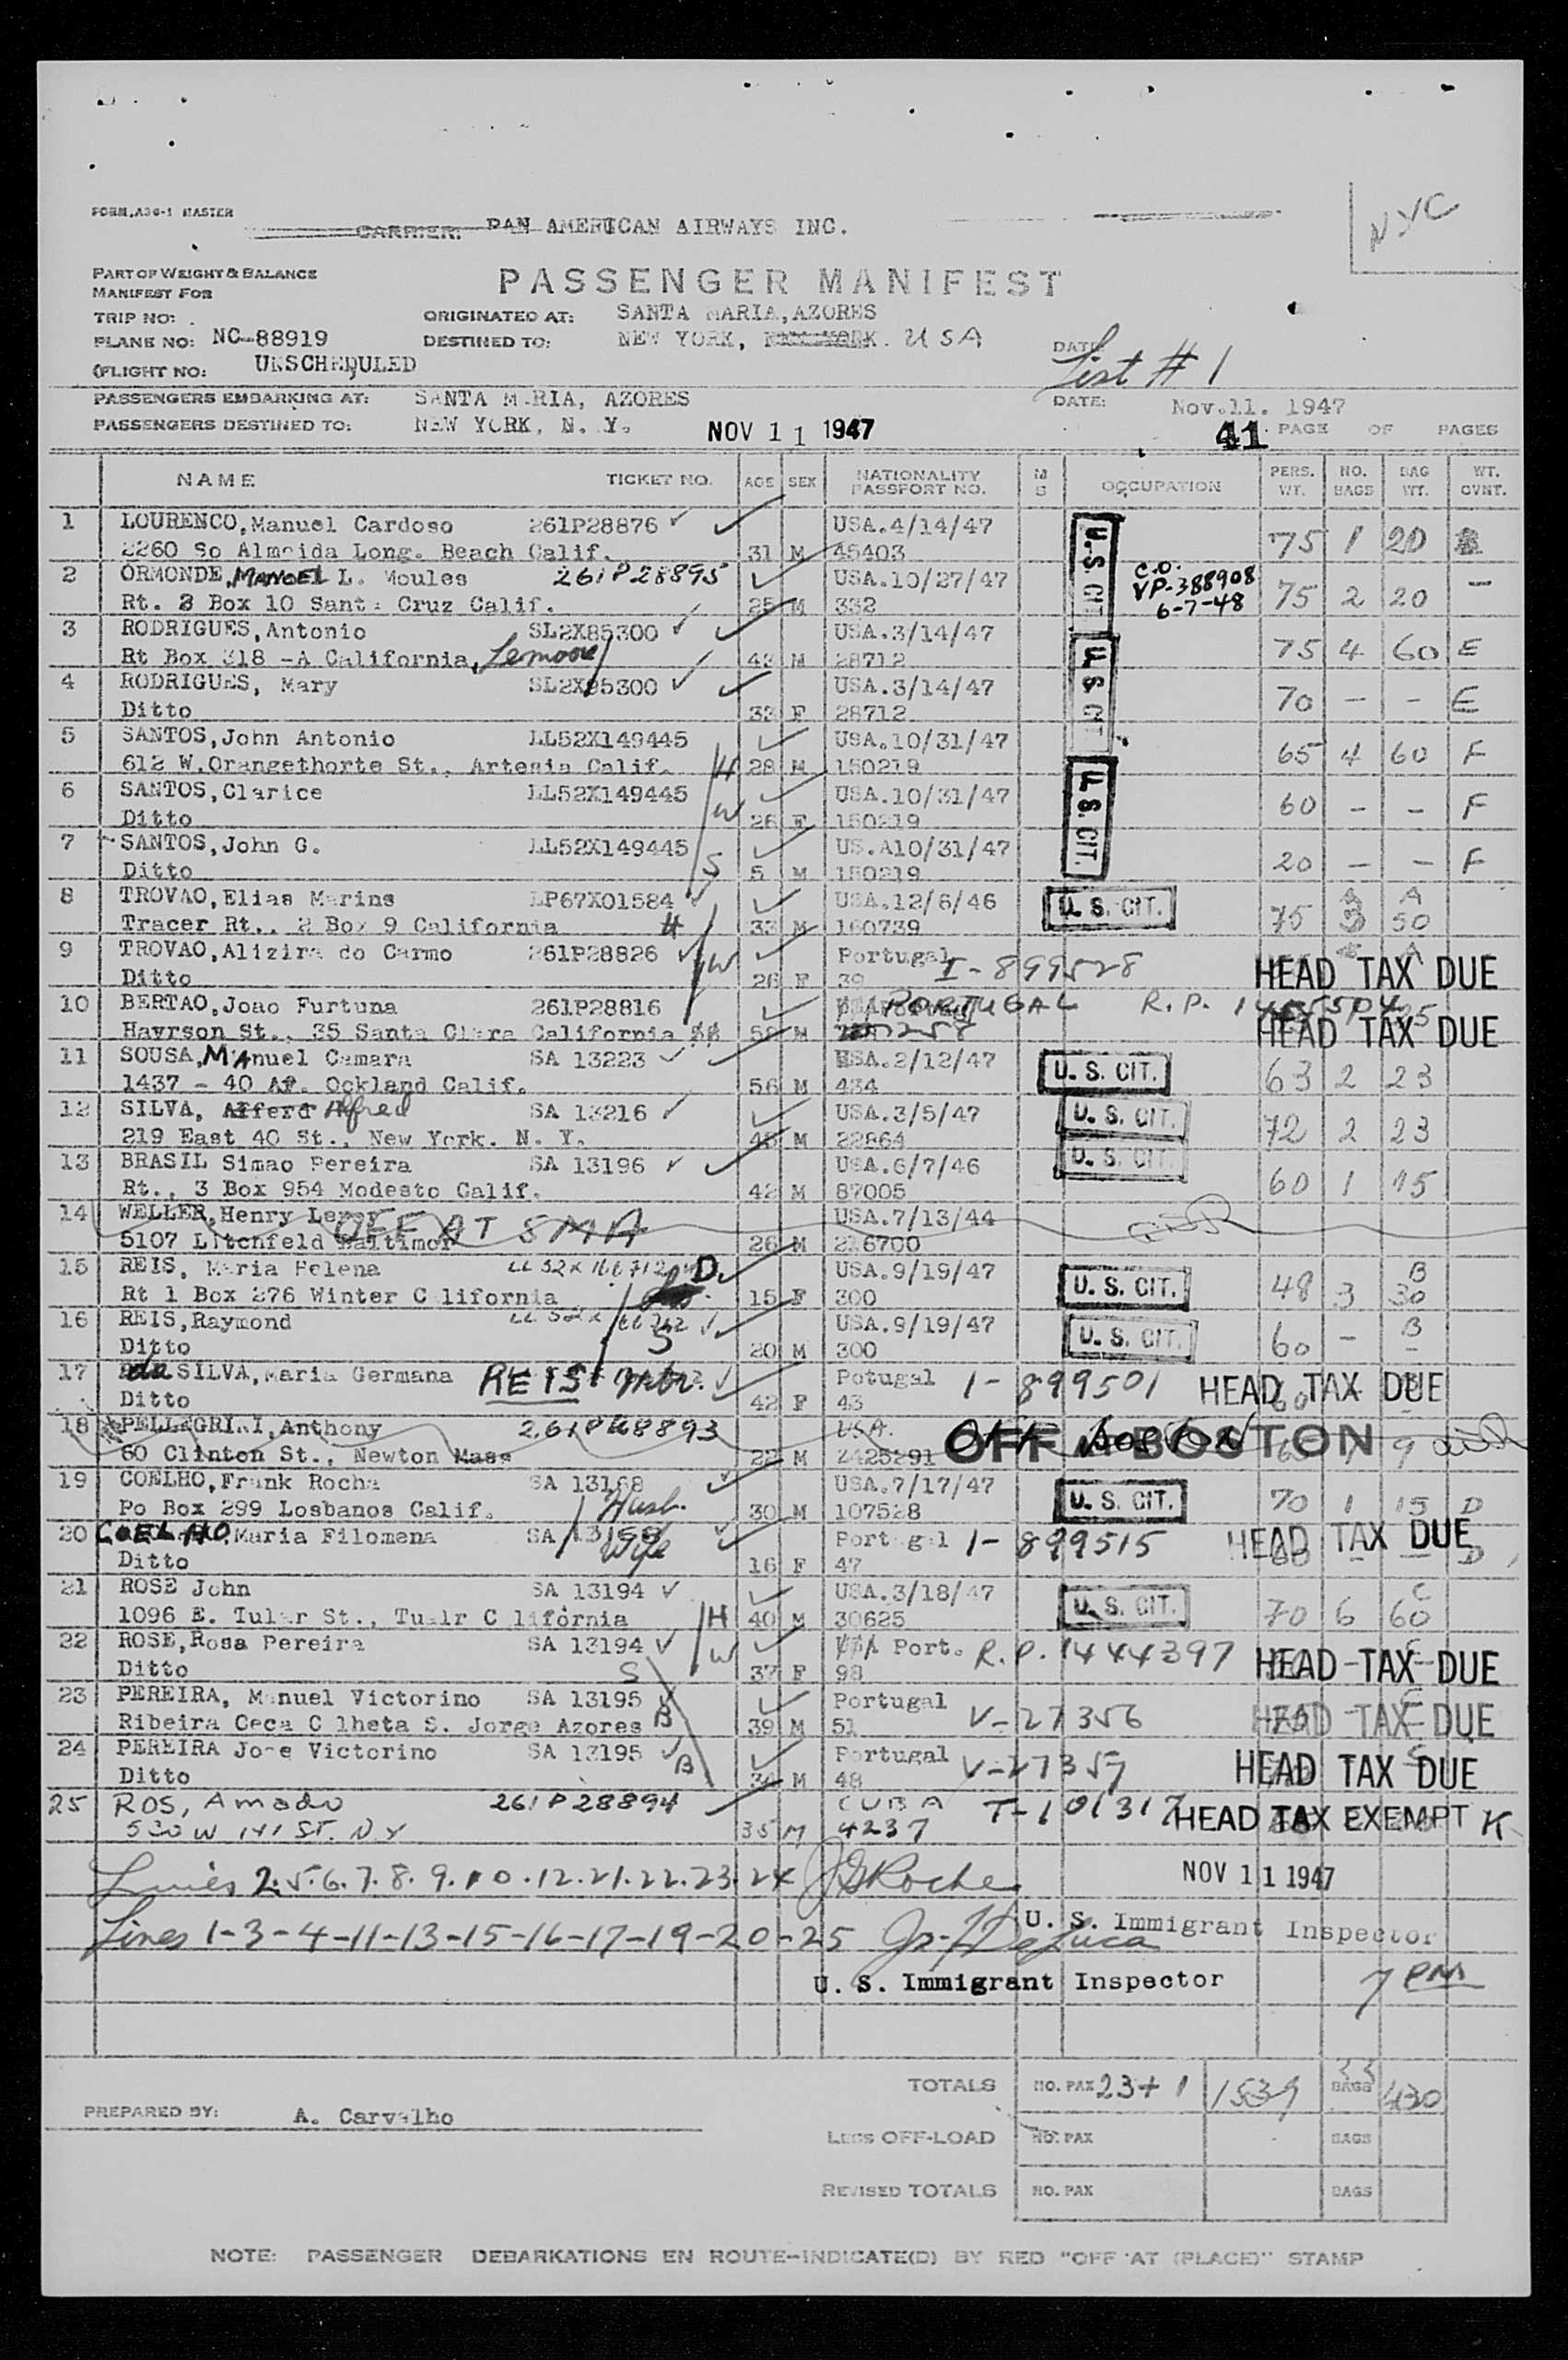 NYC
FORM.A36-1 MASTER
CARRIER: PAN AMERICAN AIRWAYS INC.
PART OF WEIGHT & BALANCE
MANIFEST FOR
PASSENGER MANIFEST
TRIP NO: ORIGINATED AT: SANTA MARIA, AZORES
PLANE NO: NC-88919 DESTINED TO: NEW YORK, USA DATE:
(FLIGHT NO: UNSCHEDULED List # 1
PASSENGERS EMBARKING AT: SANTA MARIA, AZORES DATE: Nov.11. 1947
PASSENGERS DESTINED TO: NEW YORK, N. Y. NOV 11 1947 41 PAGE OF PAGES
NAME TICKET NO. AGE SEX NATIONALITY PASSPORT NO. M S OCCUPATION PERS. WT. NO. BAGS BAG WT. WT. CVNT.
1 LOURENCO,Manuel Cardoso 261P28876 USA.4/14/47 U.S. CIT 75 1 20
2260 So Almeida Long. Beach Calif. 31 M 45403
2 ORMONDE,MANOEL L. Moules 261P28895 USA.10/27/47 C.O. VP-388908 6-7-48 75 2 20 -
Rt. 3 Box 10 Santa Cruz Calif. 25 M 332
3 RODRIGUES,Antonio SL2X85300 USA.3/14/47 U S CIT 75 4 60 E
Rt Box 318 -A California, Lemoore 43 M 28712
4 RODRIGUES, Mary SL2X95300 USA.3/14/47 70 - - E
Ditto F 28712
5 SANTOS,John Antonio LL52X149445 USA.10/31/47 65 4 60 F
612 W.Orangethorte St., Artesia Calif. H 28 M 150219
6 SANTOS,Clarice LL52X149445 USA.10/31/47 U.S. CIT. 60 - - F
Ditto W 26 F 150219
7 SANTOS,John G. LL52X149445 US.A10/31/47 20 - - F
Ditto S 5 M 150219
8 TROVAO,Elias Marins LP67X01584 USA.12/6/46 U. S. CIT. 75 3 50 A
Tracer Rt., 2 Box 9 California H 33 M 160739
9 TROVAO,Alizira do Carmo 261P28826 Portugal I-899528 HEAD TAX DUE
Ditto W 26 F 39
10 BERTAO,Joao Furtuna 261P28816 PORTUGAL R.P. HEAD TAX DUE
Hayrson St., 35 Santa Clara California M
11 SOUSA,MAnuel Camara SA 13223 USA.2/12/47 U. S. CIT. 63 2 23
1437 - 40 Av. Ockland Calif. 56 M 434
12 SILVA, Alferd Alfred SA 13216 USA.3/5/47 U. S. CIT. 72 2 23
219 East 40 St., New York. N. Y. 45 M 22864
13 BRASIL Simao Pereira SA 13196 USA.6/7/46 U. S. CIT. 60 1 15
Rt., 3 Box 954 Modesto Calif. 42 M 87005
14 WELLER,Henry OFF AT SMA USA.7/13/44
5107 Litchfeld Baltimor 26 M 216700
15 REIS, Maria Helena D USA.9/19/47 U. S. CIT. 48 3 30 B
Rt 1 Box 276 Winter California 15 F 300
16 REIS,Raymond USA.9/19/47 U. S. CIT. 60 - - B
Ditto S 20 M 300
17 da SILVA,Maria Germana REIS Mtr. Potugal 1-899501 HEAD TAX DUE
Ditto 42 F 43
18 PELLEGRINI,Anthony 261P28893 USA. OFF BOSTON
60 Clinton St., Newton Mass 22 M 9
19 COELHO,Frank Rocha SA 13168 USA.7/17/47 U. S. CIT. 70 1 15 D
Po Box 299 Losbanos Calif. Husb. 30 M 107528
20 COELHO,Maria Filomena SA 13168 Portugal 1-899515 HEAD TAX DUE
Ditto Wife 16 F 47 D
21 ROSE John SA 13194 USA.3/18/47 U. S. CIT. 70 6 60 C
1096 E. Tular St., Tualr California H 40 M 30625
22 ROSE,Rosa Pereira SA 13194 Port. R.P. 1444397 HEAD TAX DUE
Ditto S W 37 F 98
23 PEREIRA, Manuel Victorino SA 13195 Portugal V-27356 HEAD TAX DUE
Ribeira Ceca Calheta S. Jorge Azores B 39 M 51
24 PEREIRA Jose Victorino SA 13195 Portugal V-27357 HEAD TAX DUE
Ditto B 34 M 48
25 ROS, Amado 261P28894 CUBA T-101317 HEAD TAX EXEMPT K
530 W 141 ST. N.Y 35 M 4237
Lines 2.5.6.7.8.9.10.12.21.22.23.24 JGRoche NOV 11 1947
U. S. Immigrant Inspector
Lines 1-3-4-11-13-15-16-17-19-20-25 DeLuca
U. S. Immigrant Inspector 7 PM
TOTALS NO. PAX 23+1 1539 33 BAGS 430
PREPARED BY: A. Carvalho
LESS OFF-LOAD NO. PAX BAGS
REVISED TOTALS NO. PAX BAGS
NOTE: PASSENGER DEBARKATIONS EN ROUTE-INDICATE(D) BY RED "OFF AT (PLACE)" STAMP